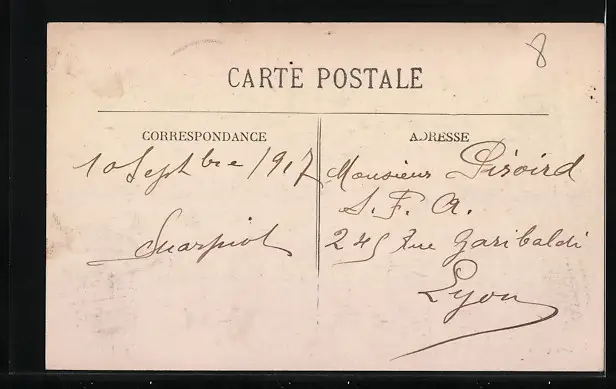 8
CARTE POSTALE
CORRESPONDANCE
10 Septbre 1917
ADRESSE
Monsieur
S. F. A.
245 Rue Garibaldi
Lyon